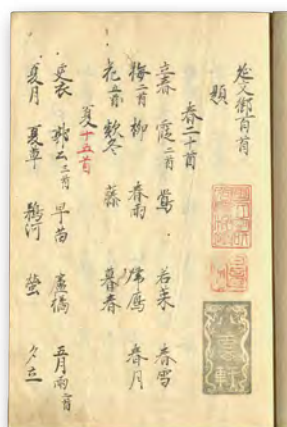 延文御百首
題
春二十首
立春 霞二首 鶯 若菜 春雪
梅二首 柳 春雨 帰鴈 春月
花五首 款冬 藤 暮春
夏十五首
更衣 郭公三首 早苗 盧橘 五月雨二首
夏月 夏草 鵜河 蛍 夕立